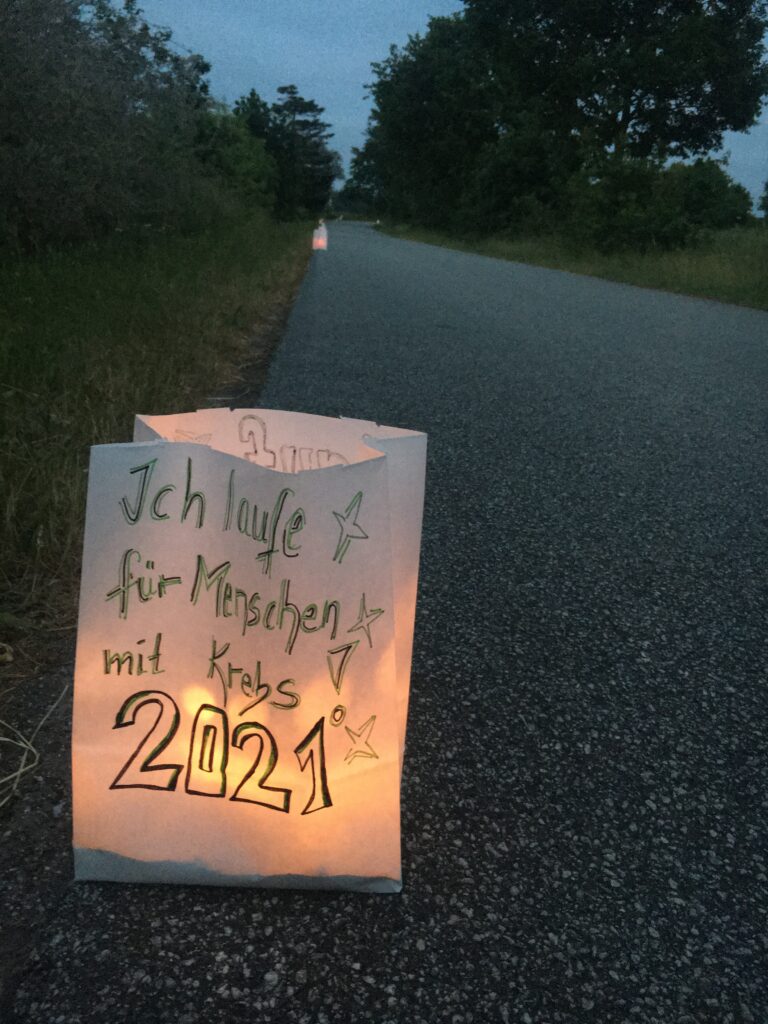 Ich laufe
für Menschen
mit Krebs!
2021